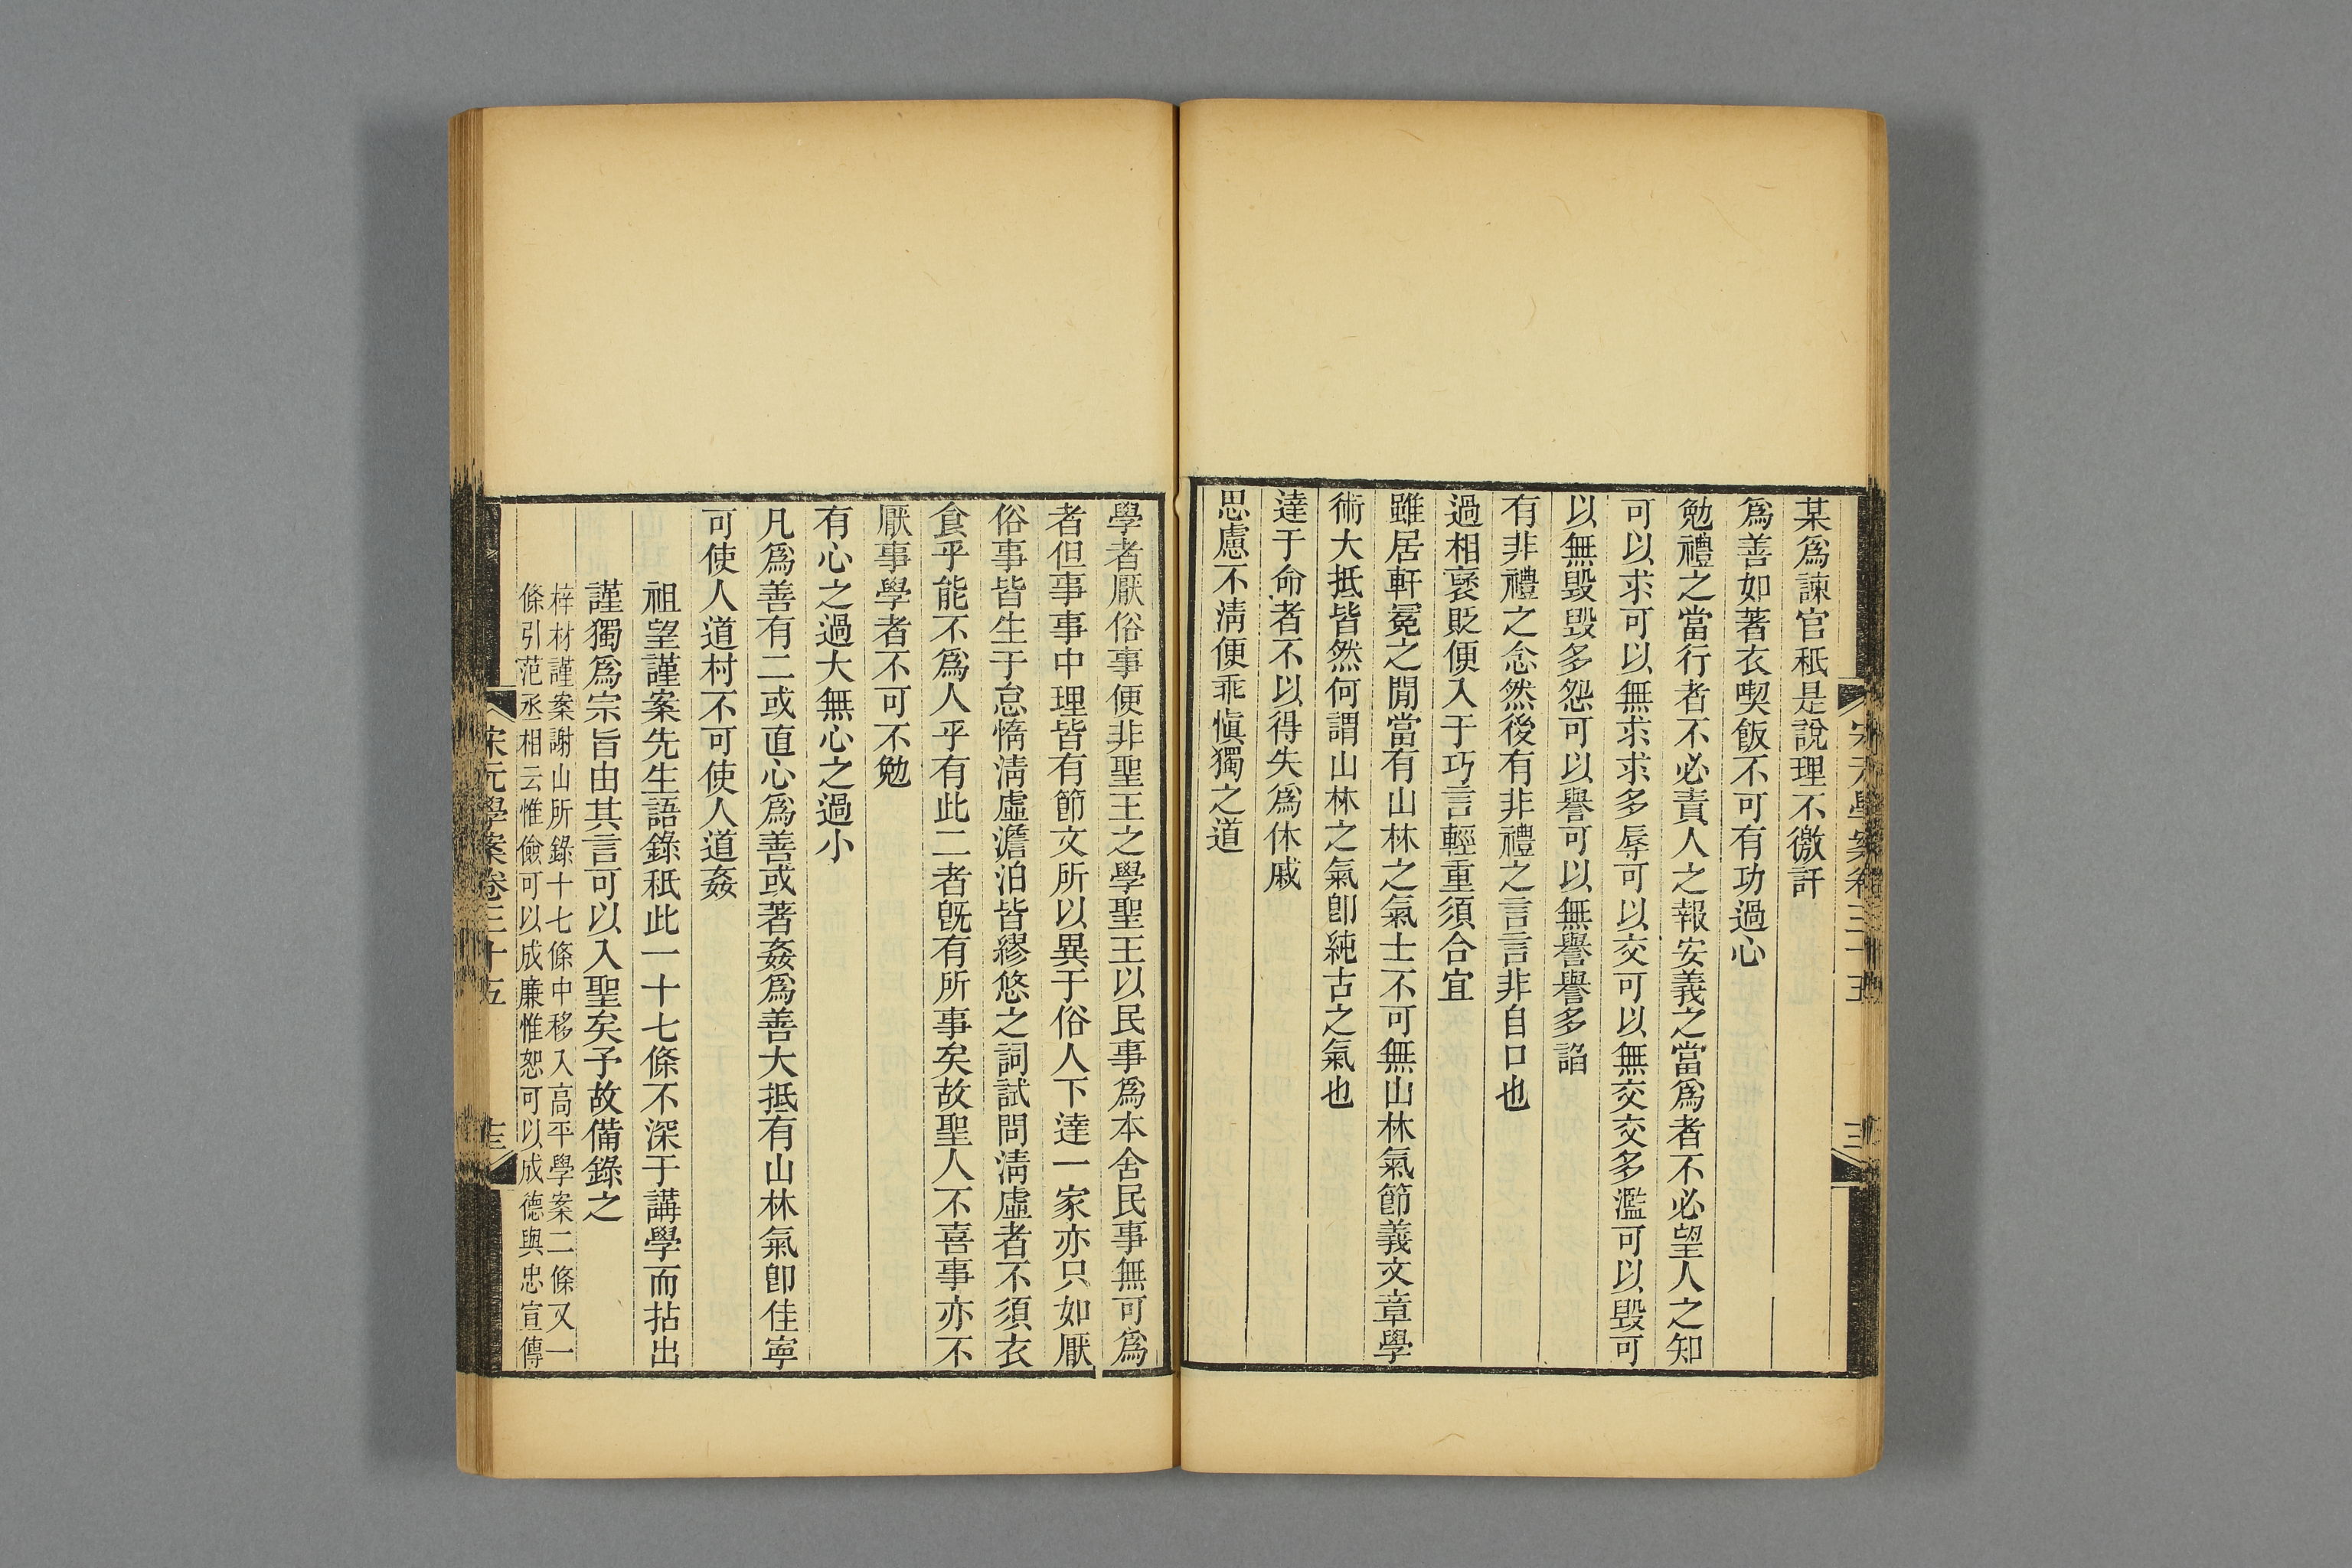 某爲諫官秖是說理不徼訐
爲善如著衣喫飯不可有功過心
勉禮之當行者不必責人之報安義之當爲者不必望人之知
可以求可以無求求多辱可以交可以無交交多濫可以毀可
以無毀毀多怨可以譽可以無譽譽多諂
有非禮之念然後有非禮之言言非自口也
過相襃貶便入于巧言輕重須合宜
雖居軒冕之閒當有山林之氣士不可無山林氣節義文章學
術大抵皆然何謂山林之氣卽純古之氣也
達于命者不以得失爲休戚
思慮不淸便乖愼獨之道
學者厭俗事便非聖王之學聖王以民事爲本舍民事無可爲
者但事事中理皆有節文所以異于俗人下達一家亦只如厭
俗事皆生于怠惰淸虛澹泊皆繆悠之詞試問淸虛者不須衣
食乎能不爲人乎有此二者旣有所事矣故聖人不喜事亦不
厭事學者不可不勉
有心之過大無心之過小
凡爲善有二或直心爲善或著姦爲善大抵有山林氣卽佳寧
可使人道村不可使人道姦
祖望謹案先生語錄秖此一十七條不深于講學而拈出
謹獨爲宗旨由其言可以入聖矣予故備錄之
梓材謹案謝山所錄十七條中移入高平學案二條又一
條引范丞相云惟儉可以成廉惟恕可以成德與忠宣傳
宋元學案卷三十五